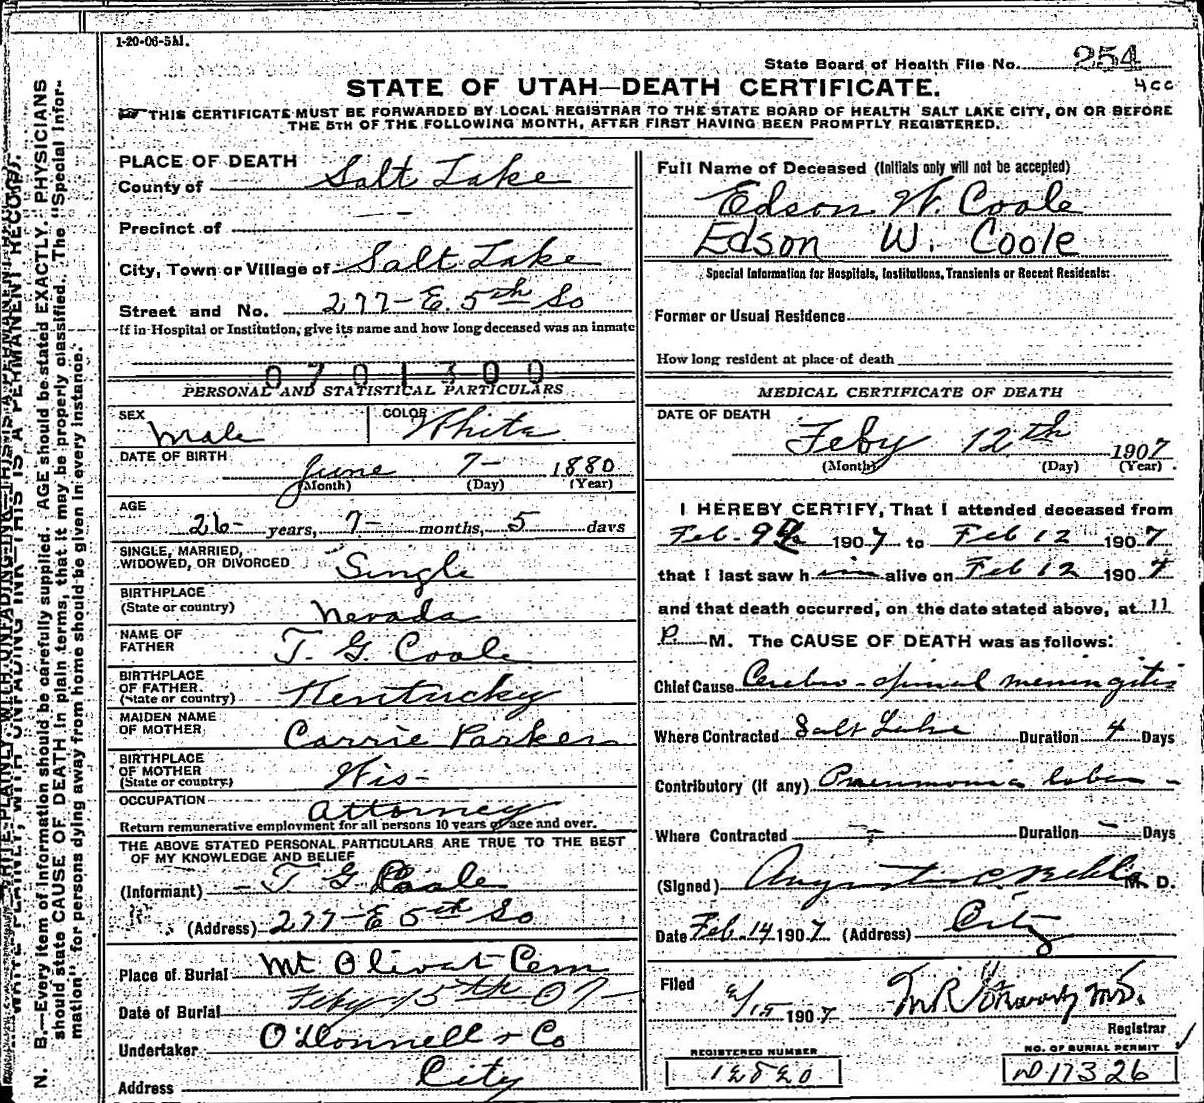 1-20-06-5M.
State Board of Health File No. 254
4cc
STATE OF UTAH—DEATH CERTIFICATE.
THIS CERTIFICATE MUST BE FORWARDED BY LOCAL REGISTRAR TO THE STATE BOARD OF HEALTH SALT LAKE CITY, ON OR BEFORE
THE 5TH OF THE FOLLOWING MONTH, AFTER FIRST HAVING BEEN PROMPTLY REGISTERED.
PLACE OF DEATH
County of Salt Lake
Precinct of
City, Town or Village of Salt Lake
Street and No. 277-E. 5th So
If in Hospital or Institution, give its name and how long deceased was an inmate
0701300
PERSONAL AND STATISTICAL PARTICULARS
SEX Male COLOR White
DATE OF BIRTH June 7- 1880
(Month) (Day) (Year)
AGE 26- years, 7- months, 5 days
SINGLE, MARRIED,
WIDOWED, OR DIVORCED Single
BIRTHPLACE
(State or country) Nevada
NAME OF
FATHER T. G. Coole
BIRTHPLACE
OF FATHER
(State or country) Kentucky
MAIDEN NAME
OF MOTHER Carrie Parker
BIRTHPLACE
OF MOTHER
(State or country) Wis-
OCCUPATION Attorney
Return remunerative employment for all persons 10 years of age and over.
THE ABOVE STATED PERSONAL PARTICULARS ARE TRUE TO THE BEST
OF MY KNOWLEDGE AND BELIEF
(Informant) T G Coole
(Address) 277-E 5th So
Place of Burial Mt Olivat Cem
Date of Burial Feby 15th 07-
Undertaker O'Donnell & Co
Address City
Full Name of Deceased (Initials only will not be accepted)
Edson W. Coole
Edson W. Coole
Special Information for Hospitals, Institutions, Transients or Recent Residents:
Former or Usual Residence
How long resident at place of death
MEDICAL CERTIFICATE OF DEATH
DATE OF DEATH
Feby 12th 1907
(Month) (Day) (Year)
I HEREBY CERTIFY, That I attended deceased from
Feb. 9th 1907 to Feb 12 1907
that I last saw him alive on Feb 12 1907
and that death occurred, on the date stated above, at 11
P. M. The CAUSE OF DEATH was as follows:
Chief Cause Cerebro-spinal meningitis
Where Contracted Salt Lake Duration 4 Days
Contributory (if any) Pneumonia lobar -
Where Contracted Duration Days
(Signed) August C. M. D.
Date Feb. 14 1907 (Address) City
Filed 2/15 1907 M.D.
Registrar
REGISTERED NUMBER
NO. OF BURIAL PERMIT
17326
N. B.—Every item of information should be carefully supplied. AGE should be stated EXACTLY. PHYSICIANS
should state CAUSE OF DEATH in plain terms, that it may be properly classified. The "Special Infor-
mation" for persons dying away from home should be given in every instance.
WRITE PLAINLY, WITH UNFADING INK—THIS IS A PERMANENT RECORD.